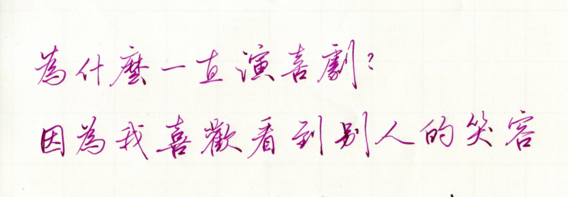 為什麼一直演喜劇?
因為我喜歡看到別人的笑容